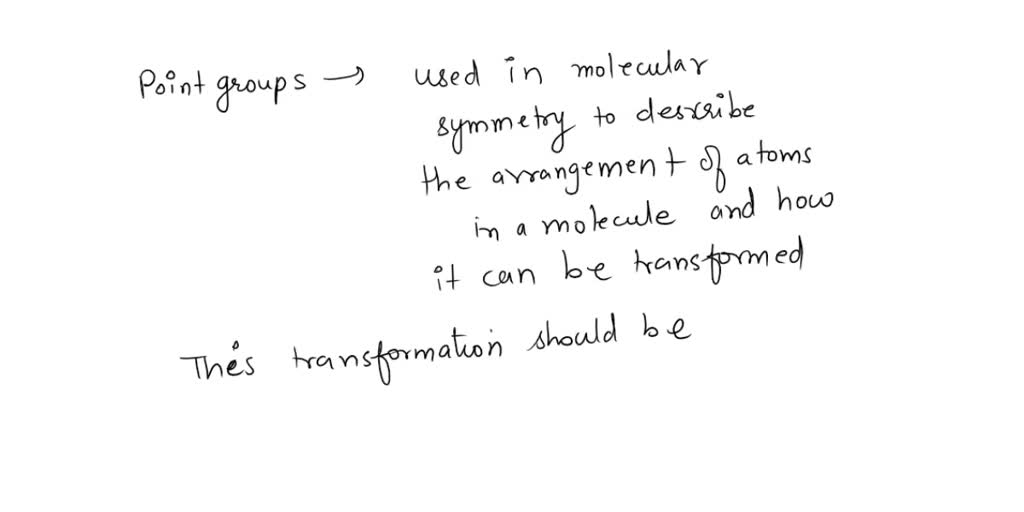 Point groups → used in molecular
symmetry to describe
the arrangement of atoms
in a molecule and how
it can be transformed
This transformation should be